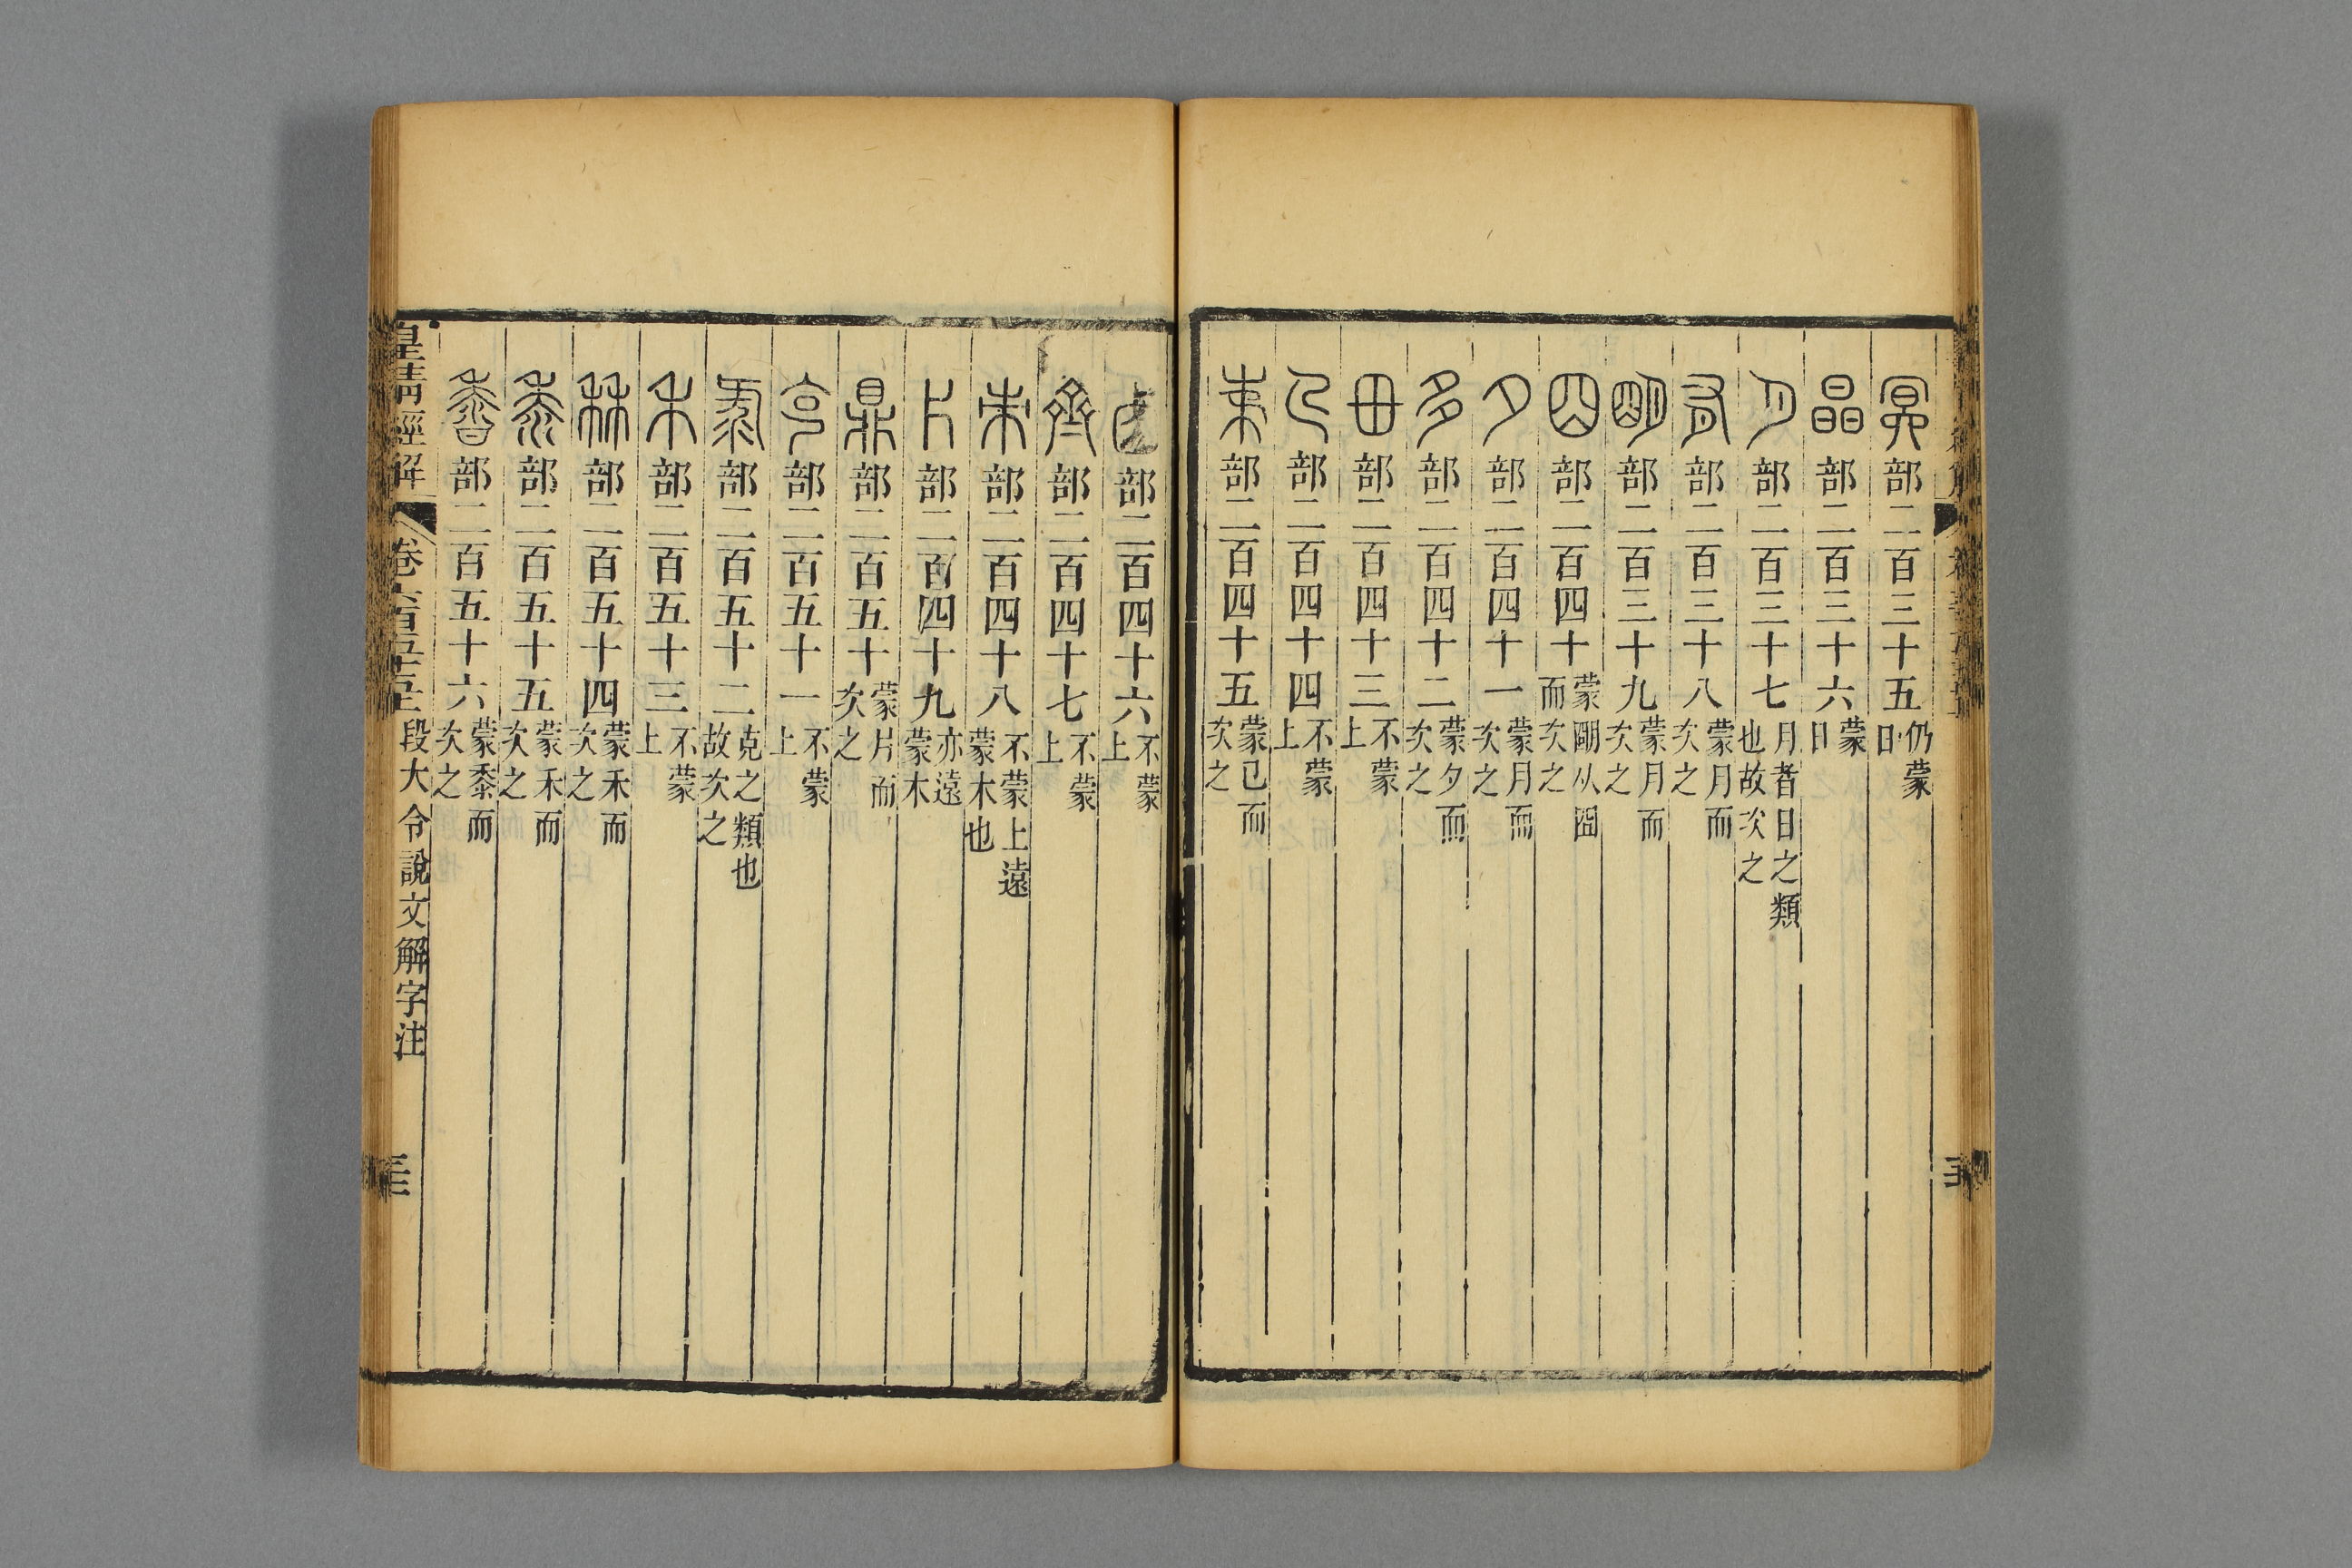 冥部二百三十五仍蒙日
晶部二百三十六蒙日
月部二百三十七月者日之類也故次之
有部二百三十八蒙月而次之
朙部二百三十九蒙月而次之
囧部二百四十蒙朙从囧而次之
夕部二百四十一蒙月而次之
多部二百四十二蒙夕而次之
毌部二百四十三不蒙上
𢎘部二百四十四不蒙上
𣐺部二百四十五蒙𢎘而次之
𠧪部二百四十六不蒙上
齊部二百四十七不蒙上
朿部二百四十八不蒙上遠蒙木也
片部二百四十九亦遠蒙木
鼎部二百五十蒙片而次之
克部二百五十一不蒙上
彔部二百五十二克之類也故次之
禾部二百五十三不蒙上
秝部二百五十四蒙禾而次之
黍部二百五十五蒙禾而次之
香部二百五十六蒙黍而次之
皇清經解 卷六百五十五 段大令說文解字注